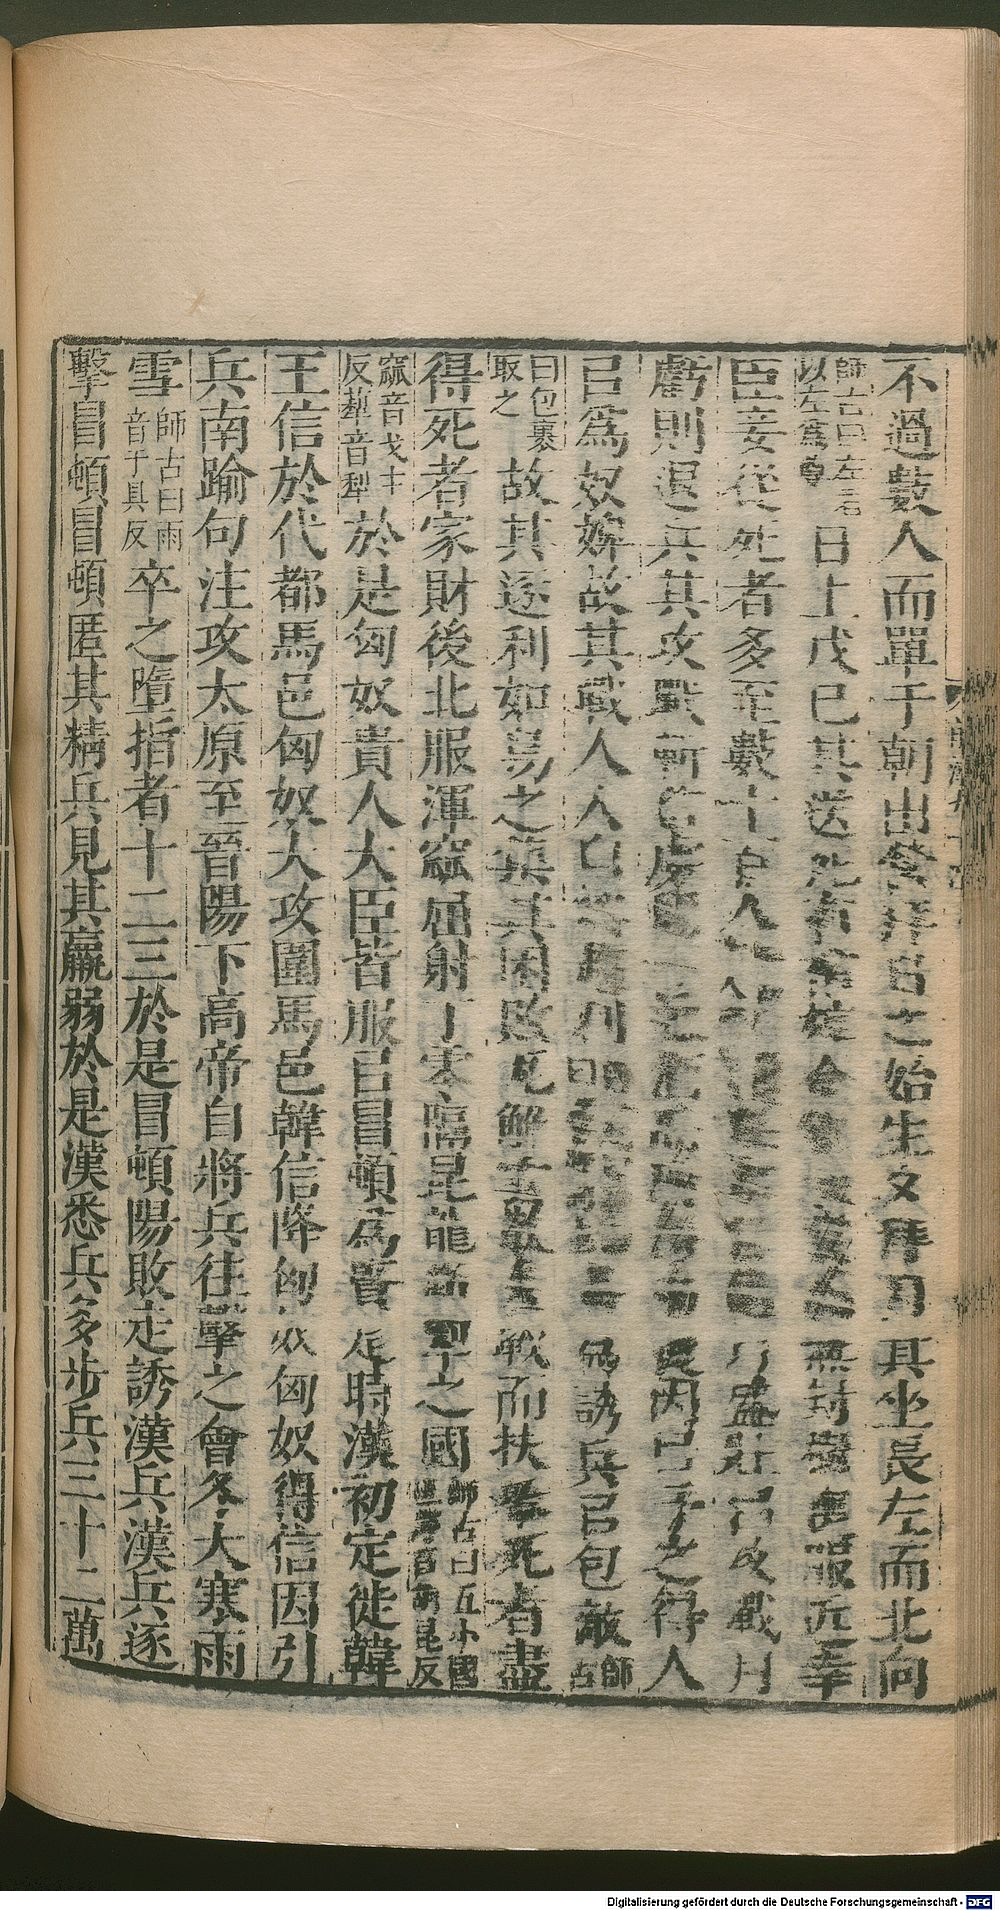 不過數人而單于朝出營拜日之始生夕拜月其坐長左而北向
師古曰左者以左爲尊日上戊己其送死有棺椁金無封樹喪服近幸
臣妾從死者多至數十百人月盛壯㠯攻戰月
虧則退兵其攻戰斬首虜一巵酒因㠯予之得人
㠯爲奴婢故其戰人人自爲趨利爲誘兵㠯包敵師古
曰包裹取之故其逐利如鳥之集其困敗瓦解雲散矣戰而扶轝死者盡
得死者家財後北服渾窳屈射丁零隔昆龍新䔣之國師古曰五小國
窳音弋主反犂音犁於是匈奴貴人大臣皆服㠯冒頓爲賢是時漢初定徙韓
王信於代都馬邑匈奴大攻圍馬邑韓信降匈奴匈奴得信因引
兵南踰句注攻太原至晉陽下高帝自將兵往擊之會冬大寒雨
雪師古曰雨音于具反卒之墮指者十二三於是冒頓陽敗走誘漢兵漢兵逐
擊冒頓冒頓匿其精兵見其羸弱於是漢悉兵多步兵三十二萬
Digitalisierung gefördert durch die Deutsche Forschungsgemeinschaft - DFG